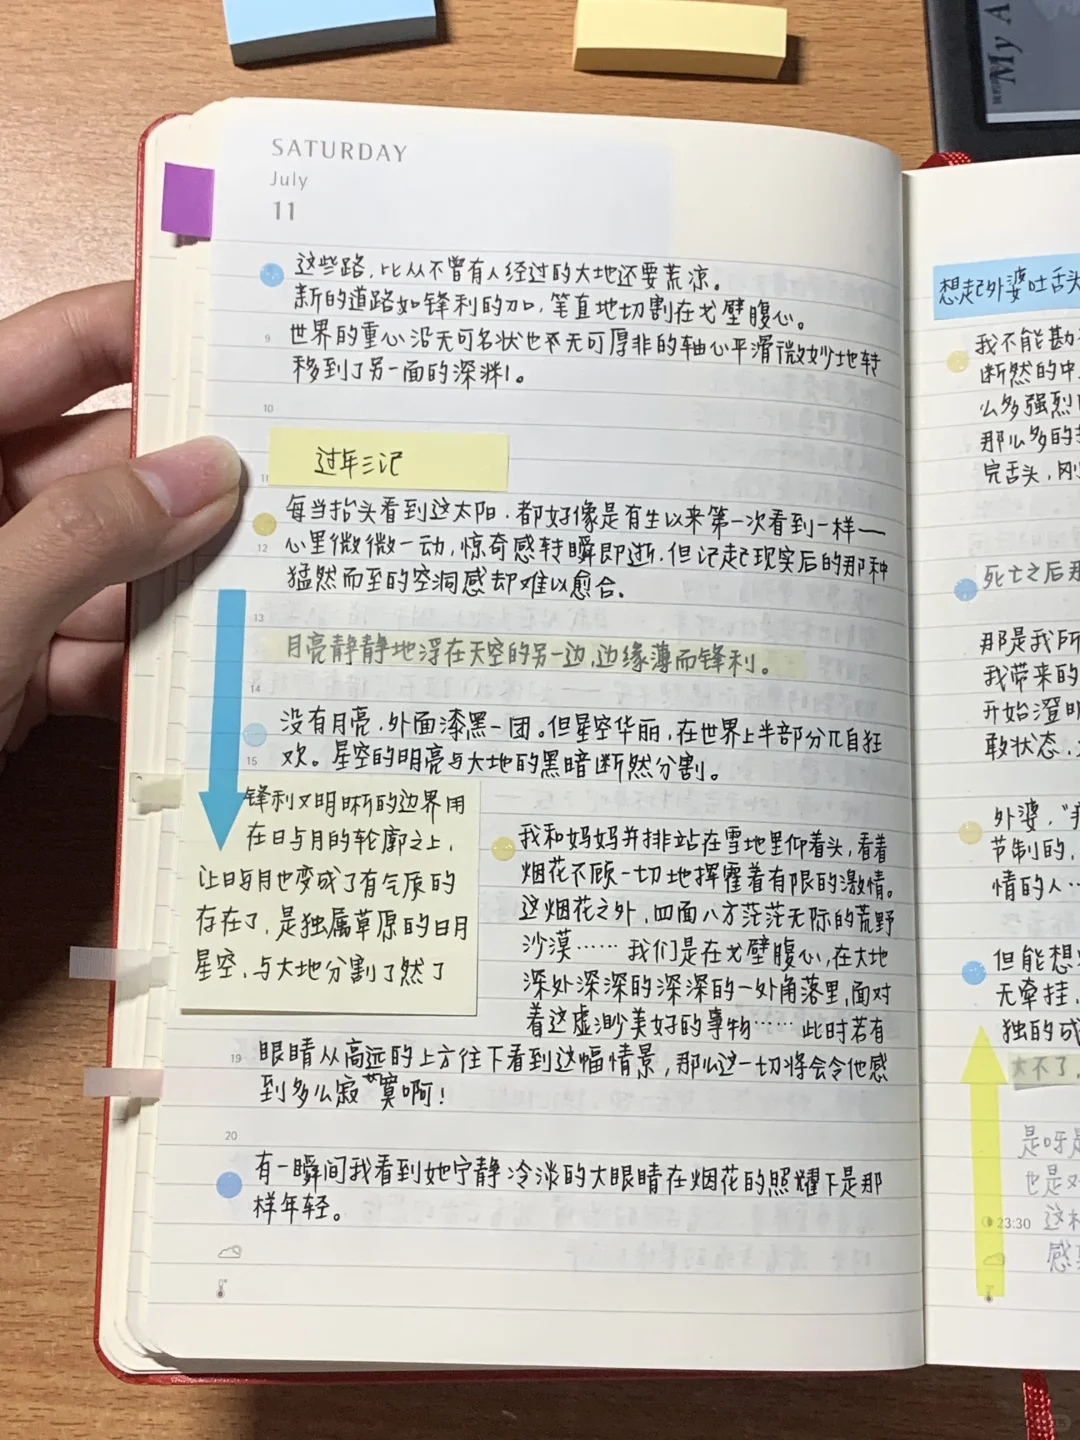 My A
SATURDAY
July
11
这些路，比从不曾有人经过的大地还要荒凉。
新的道路如锋利的刀口，笔直地切割在戈壁腹心。
9
世界的重心沿无可名状也不无可厚非的轴心平滑微妙地转
移到了另一面的深渊。
10
过年三记
11
每当抬头看到这太阳，都好像是有生以来第一次看到一样——
12
心里微微一动，惊奇感转瞬即逝，但记起现实后的那种
猛然而至的空洞感却难以愈合。
13
月亮静静地浮在天空的另一边，边缘薄而锋利。
14
没有月亮，外面漆黑一团。但星空华丽，在世界上半部分兀自狂
15
欢。星空的明亮与大地的黑暗断然分割。
锋利又明晰的边界用
在日与月的轮廓之上，
让日与月也变成了有气质的
存在了，是独属草原的日月
星空，与大地分割了然了
我和妈妈并排站在雪地里仰着头，看着
烟花不顾一切地挥霍着有限的激情。
这烟花之外，四面八方茫茫无际的荒野
沙漠……我们是在戈壁腹心，在大地
深处深深的深深的一处角落里，面对
着这虚渺美好的事物……此时若有
19
眼睛从高远的上方往下看到这幅情景，那么这一切将会令他感
到多么寂寞啊！
20
有一瞬间我看到她宁静冷淡的大眼睛在烟花的照耀下是那
样年轻。
想起外婆吐舌头
我不能勘
断然的中
么多强烈
那么多的
完舌头，刚
死亡之后那
那是我所
我带来的
开始澄明
敢状态，
外婆，“我
节制的，
情的人…
但能想
无牵挂，
独的成
大不了，
是呀是
也是对
23:30
这样
感